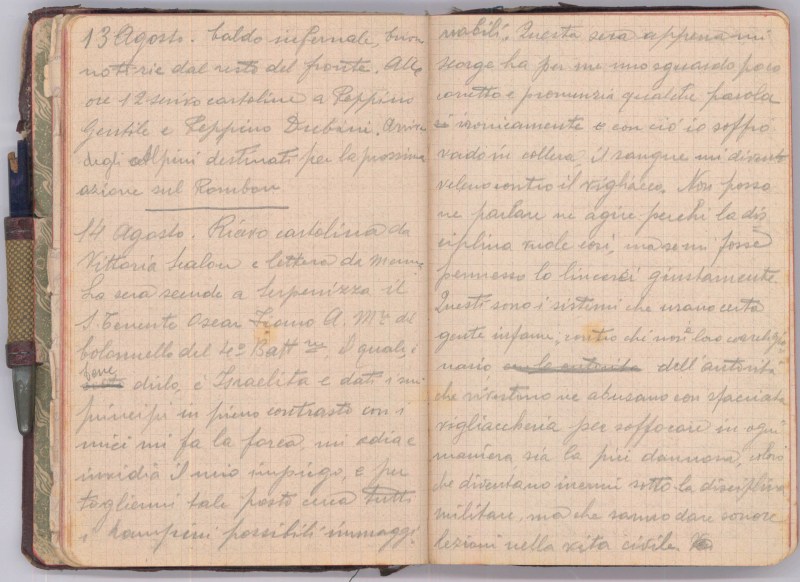 13 Agosto. Caldo infernale, buone
notizie dal resto del fronte. Alle
ore 12 scrivo cartoline a Peppino
Gentile e Peppino Dubini. Arrivo
degli Alpini destinati per la prossima
azione sul Rombon
14 Agosto. Ricevo cartolina da
Vittoria e lettera da Mamma
La sera scende a Serpenizza il
S. Tenente Oscar A. Mre del
colonnello del 4º Batt il quale, è
bene dirlo, è Israelita e dati i suoi
principi in pieno contrasto con i
miei mi fa la forca, mi odia e
invidia il mio impiego, e per
togliermi tale posto cerca tutti
i rampini possibili immaggi
nabili. Questa sera appena mi
scorge ha per me uno sguardo poco
corretto e pronunzia qualche parola
ironicamente e con ciò io soffro
vado in collera il sangue mi diventa
veleno contro il vigliacco. Non posso
ne parlare ne agire perchè la dis
ciplina vuole così, ma se mi fosse
permesso lo lincerei giustamente.
Questi sono i sistemi che usano certa
gente infame, contro chi non è loro
nario su la autorità dell'autorità
che rivestono ne abusano con sfacciata
vigliaccheria per soffocare in ogni
maniera sia la più dannosa, coloro
che diventano inermi sotto la disciplina
militare, ma che sanno dare sonore
lezioni nella vita civile.